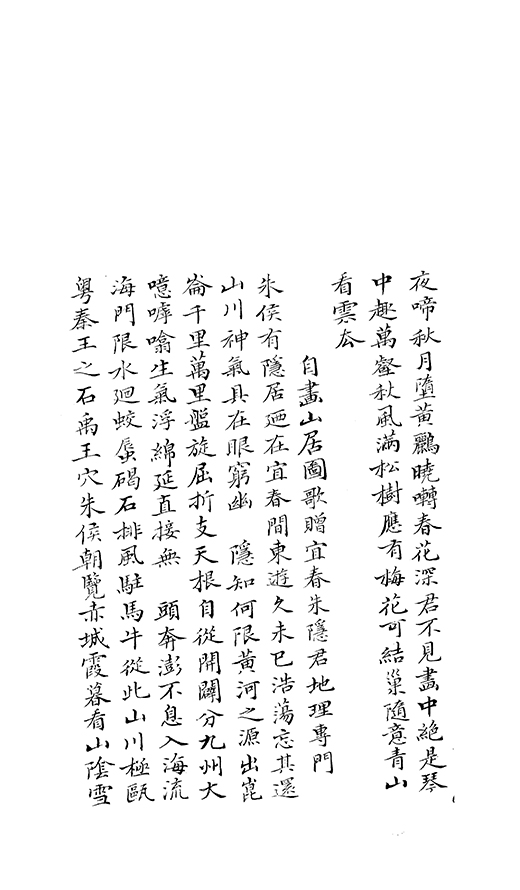 夜啼秋月墮黃鸝曉囀春花深君不見畫中絕是琴
中趣萬壑秋風滿松樹應有梅花可結巢隨意青山
看雲厺
自畫山居圖歌贈宜春朱隱君地理專門
朱侯有隱居廼在宜春間東遊久未已浩蕩忘其還
山川神氣具在眼窮幽 隱知何限黃河之源出崑
崙千里萬里盤旋屈折支天根自從開闢分九州大
噫嘑噏生氣浮綿延直接無 頭奔澎不息入海流
海門限水廻蛟蜃碣石排風駐馬牛從此山川極甌
粵秦王之石禹王穴朱侯朝覽赤城霞暮看山陰雪